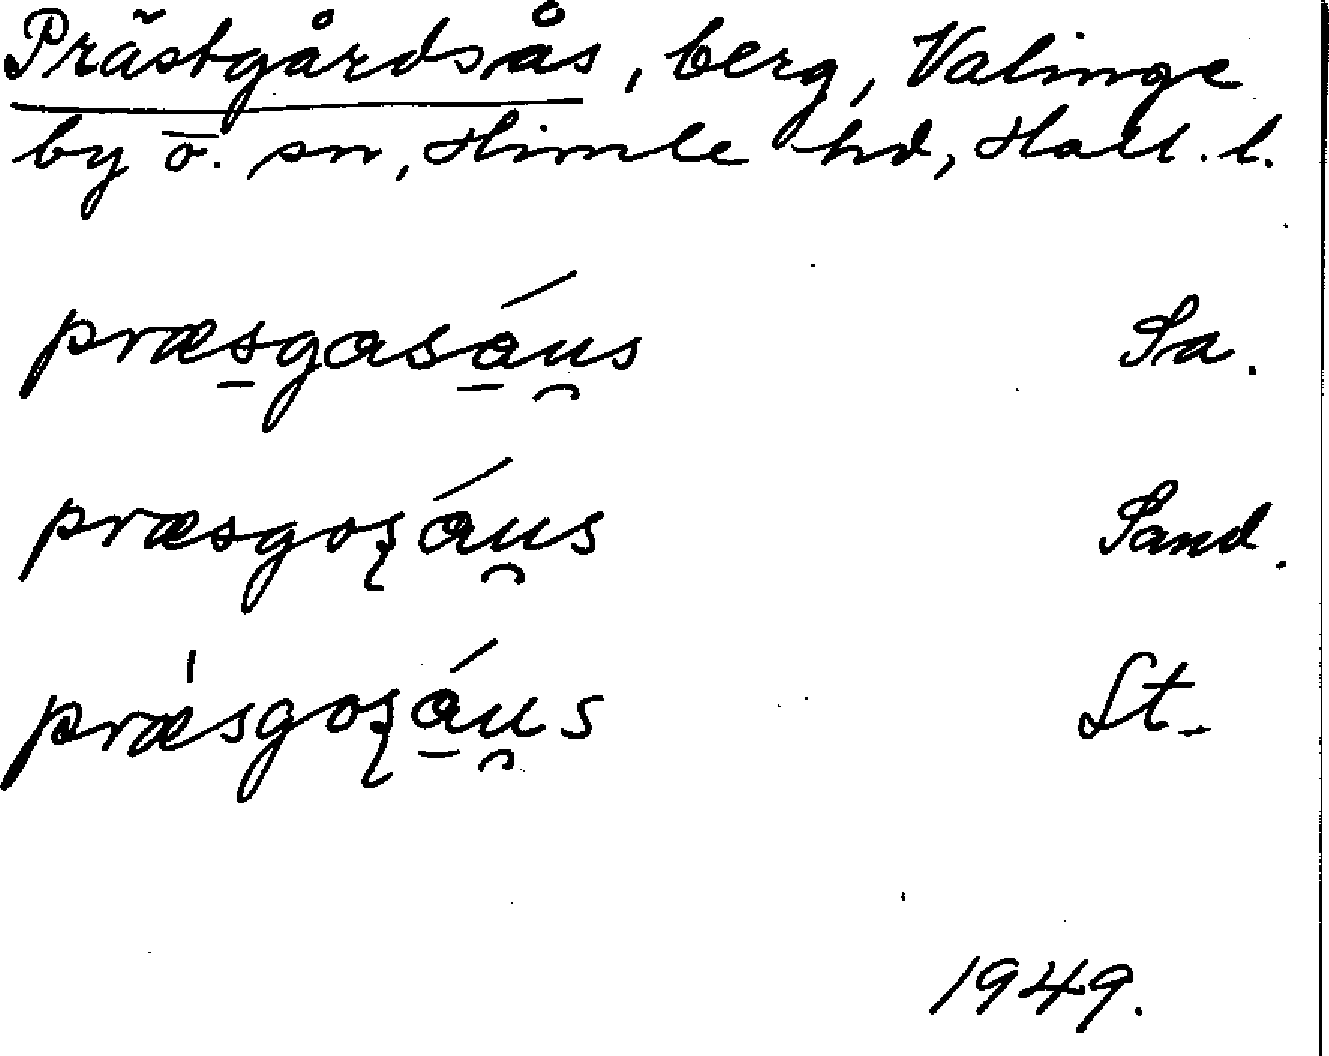 Prästgårdsås, berg, Valinge
by o. sn, Himle hd, Hall. l.
præsgasáu̯s Sa.
præsgoʂáu̯s Sand.
prǽsgoʂáu̯s St.
1949.